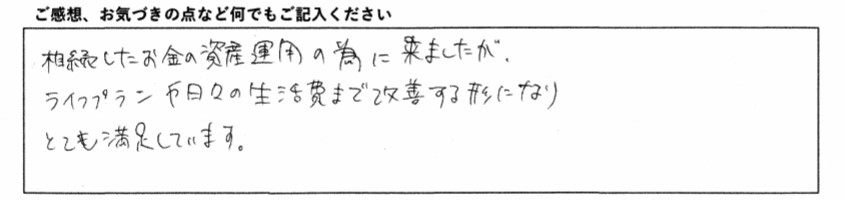 ご感想、お気づきの点など何でもご記入ください
相続したお金の資産運用の為に来ましたが、
ライフプランや日々の生活費まで改善する形になり
とても満足しています。